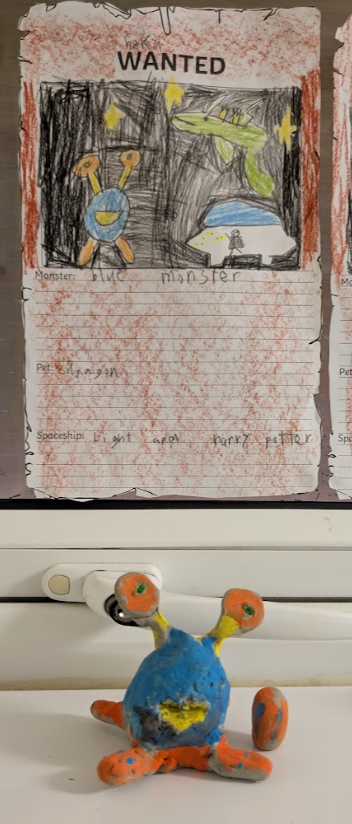 WANTED
Monster: blue monster
Pet: dragon
Spaceship: Light and harry potter